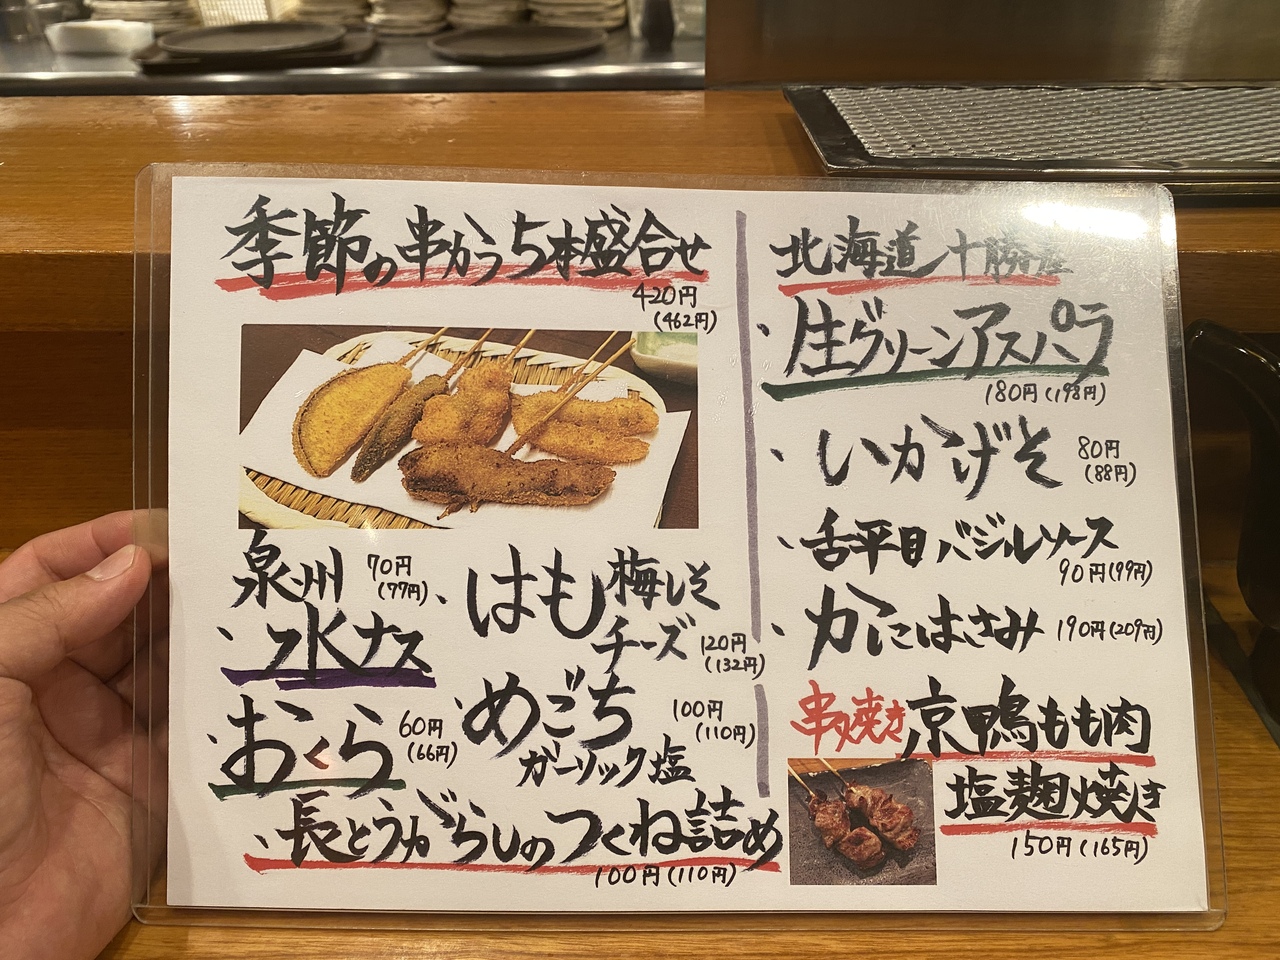 季節の串かつ5本盛合せ
420円
(462円)
泉州
・水ナス
70円
(77円)
・はも梅しそ
チーズ
120円
(132円)
・おくら
60円
(66円)
・めごち
ガーリック塩
100円
(110円)
・長とうがらしのつくね詰め
100円(110円)
北海道十勝産
・生グリーンアスパラ
180円(198円)
・いかげそ
80円
(88円)
・舌平目バジルソース
90円(99円)
・かにはさみ 190円(209円)
串焼き 京鴨もも肉
塩麹焼き
150円(165円)